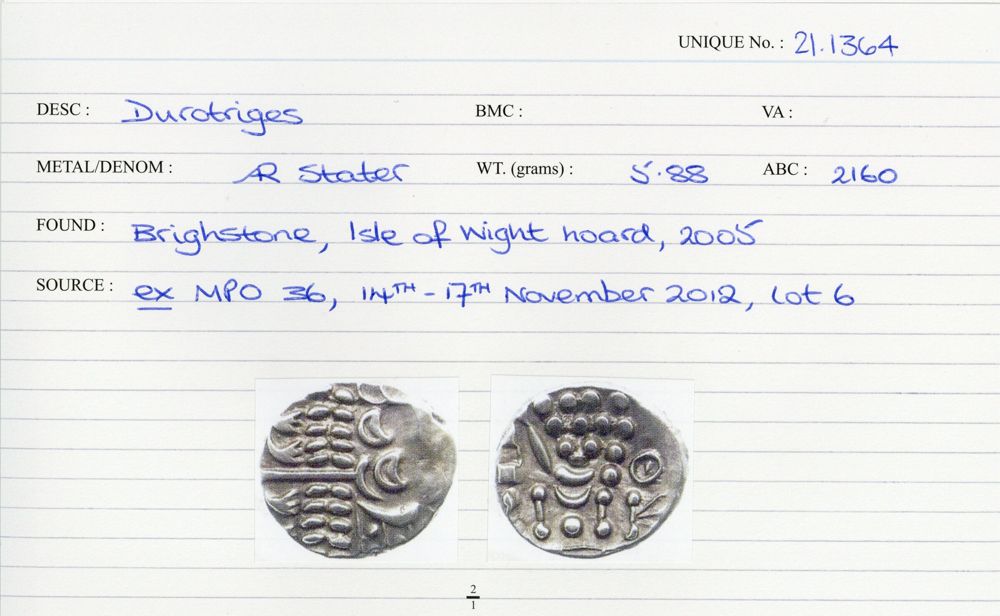 UNIQUE No. : 21.1364
DESC : Durotriges BMC : VA :
METAL/DENOM : AR Stater WT. (grams) : 5.88 ABC : 2160
FOUND : Brighstone, Isle of Wight hoard, 2005
SOURCE : ex MPO 36, 14TH - 17TH November 2012, Lot 6
2
1